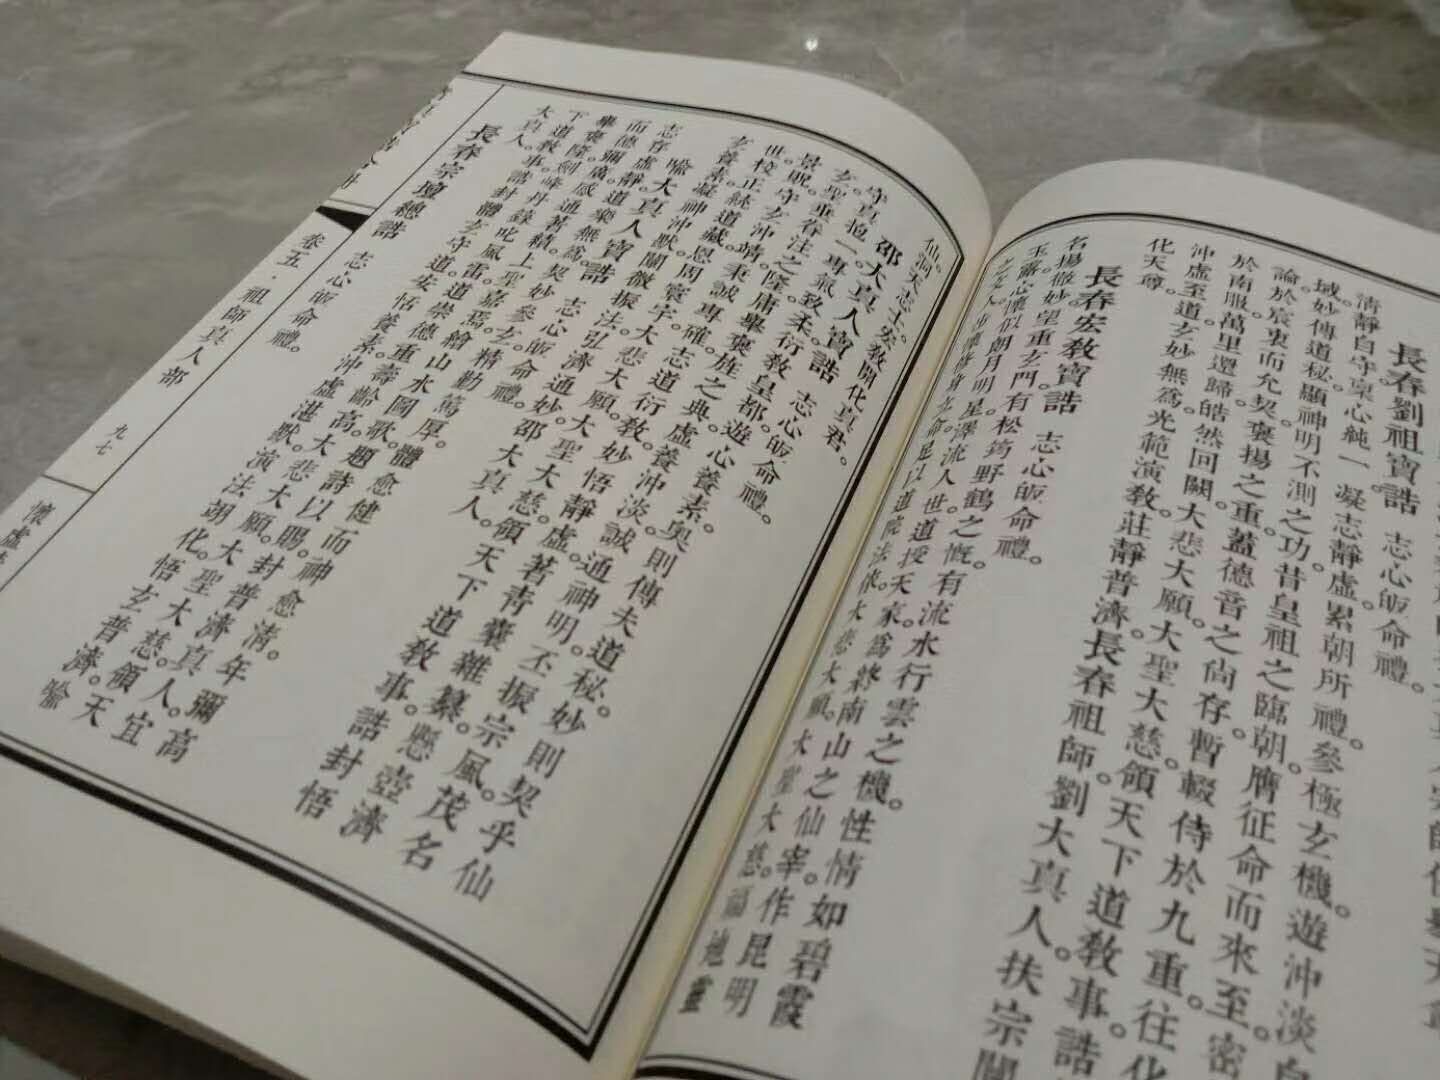 長春劉祖寶誥 志心皈命禮。
清靜自守。稟心純一。凝志靜虛。累朝所禮。參極玄機。遊沖淡自
域。妙傳道秘。顯神明不測之功。昔皇祖之臨朝。膺征命而來至。密
論於宸衷而允契。褒揚之重。蓋德音之尙存。暫輟侍於九重。往化
於南服。萬里還歸。皓然回闕。大悲大願。大聖大慈。領天下道教事。誥
沖虛至道。玄妙無爲。光範演教。莊靜普濟。長春祖師。劉大真人。扶宗闡
化天尊。
長春宏教寶誥 志心皈命禮。
名揚徼妙。望重玄門。有松筠野鶴之慨。有流水行雲之機。性情如碧霞
玉露。心懷似朗月明星。澤流人世。道授天家。爲終南山之仙宰。作昆明
修身立命。是以道院法依。大悲大願。大聖大慈。福地靈
仙。洞天志士。宏教開化真君。
邵大真人寶誥 志心皈命禮。
守真抱一。專氣致柔。衍教皇都。遊心養素。奧則傳夫道秘。妙則契乎仙
玄。聖垂眷注之隆。庸舉褒旌之典。虛養沖淡。誠通神明。丕振宗風。茂名
景貺。守玄沖靖。秉誠專確。志道衍教。妙悟靜虛。著青囊雜纂。懸壺濟
世。校正統道藏。恩周寰宇。大悲大願。大聖大慈。領天下道教事。誥封悟
玄養素。凝神沖默。闡微振法。弘濟通妙。邵大真人。
喻大真人寶誥 志心皈命禮。
志存虛靜。道樂無爲。契妙參玄。精勤篤厚。體愈健而神愈清。年彌高
而德彌廣。感通著績。上聖嘉焉。繪山水圖歌。題詩以賜。封普濟真人。宜
畢褒隆。劍峰丹錄。叱風雷。道崇德重。壽齡高。大悲大願。大聖大慈。領天
下道教事。誥封體玄守道。安恬養素。沖虛湛默。演法翊化。悟玄普濟。喻
大真人。
長春宗壇總誥 志心皈命禮。
卷五·祖師真人部
九七
懷虛